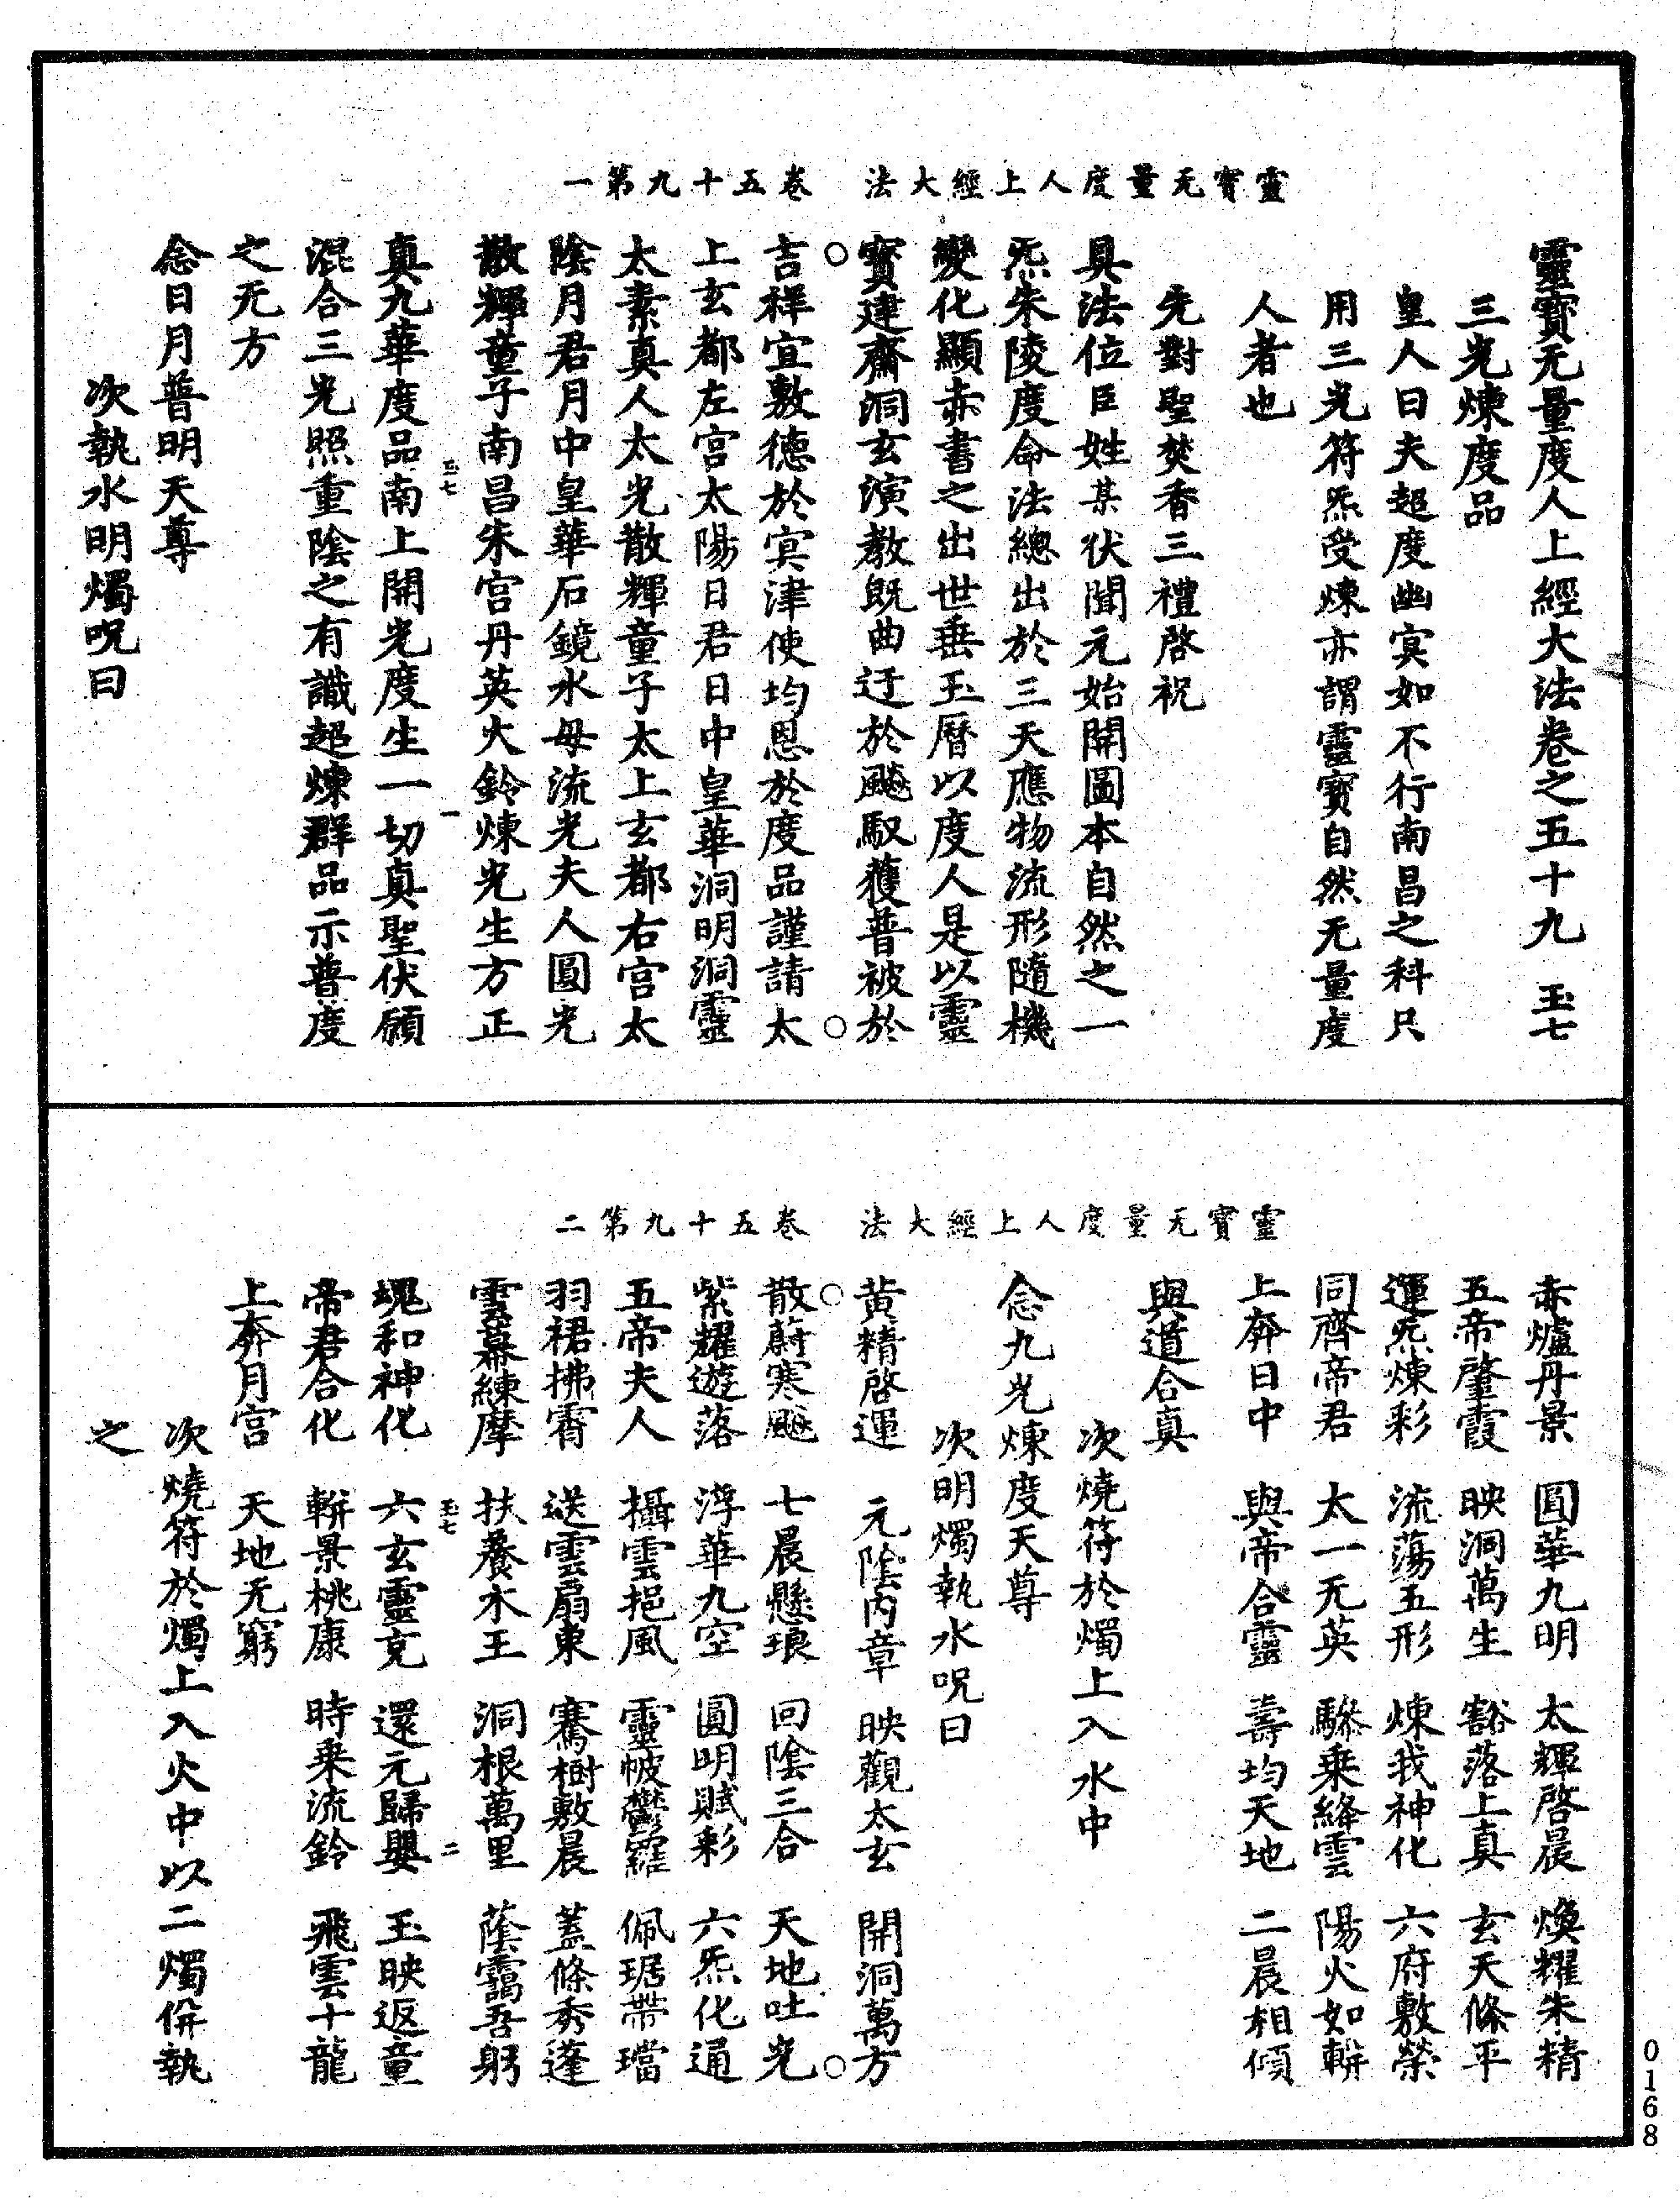 靈寶无量度人上經大法　卷五十九第一
靈寶无量度人上經大法卷之五十九　玉七
三光煉度品
皇人曰夫超度幽冥如不行南昌之科只
用三光符炁受煉亦謂靈寶自然无量度
人者也
先對聖焚香三禮啓祝
具法位臣姓某伏聞元始開圖本自然之一
炁朱陵度命法總出於三天應物流形隨機
變化顯赤書之出世垂玉曆以度人是以靈
寶建齋洞玄演教既曲迂於飈馭獲普被於
吉祥宜敷德於冥津使均恩於度品謹請太
上玄都左宫太陽日君日中皇華洞明洞靈
太素真人太光散輝童子太上玄都右宫太
陰月君月中皇華石鏡水母流光夫人圓光
散輝童子南昌朱宫丹英火鈴煉光生方正
玉七　一
真九華度品南上開光度生一切真聖伏願
混合三光照重陰之有識超煉群品示普度
之无方
念日月普明天尊
次執水明燭呪曰
靈寶无量度人上經大法　卷五十九第二
赤爐丹景　圓華九明　太輝啓晨　煥耀朱精
五帝肇霞　映洞萬生　豁落上真　玄天條平
運炁煉彩　流蕩五形　煉我神化　六府敷榮
同齊帝君　太一无英　驂乗絳雲　陽火如軿
上奔日中　與帝合靈　壽均天地　二晨相傾
與道合真
次燒符於燭上入水中
念九光煉度天尊
次明燭執水呪曰
黄精啓運　元陰内章　映觀太玄　開洞萬方
散蔚寒飈　七晨懸琅　回陰三合　天地吐光
紫耀遊落　浮華九空　圓明賦彩　六炁化通
五帝夫人　攝雲挹風　靈帔鬱羅　佩琚帶璫
羽裙拂霄　送雲扇東　騫樹敷晨　蓋條秀蓬
雲幕練摩　扶養木王　洞根萬里　蔭靄吾躬
玉七　二
魂和神化　六玄靈充　還元歸嬰　玉映返童
帝君合化　軿景桃康　時乗流鈴　飛雲十龍
上奔月宫　天地无窮
次燒符於燭上入火中以二燭併執
之
0168